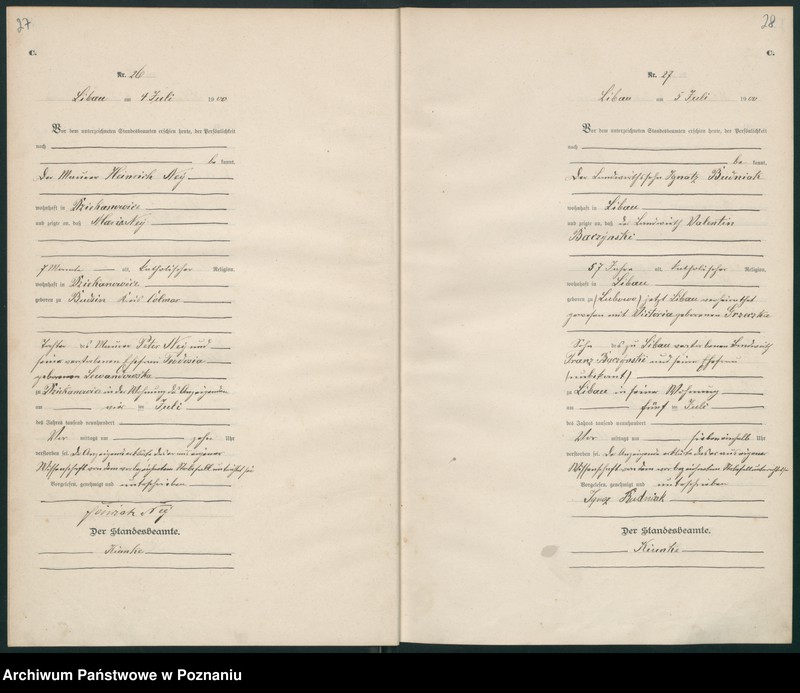 27
C.
Nr. 26
Libau am 4 Juli 1900
Vor dem unterzeichneten Standesbeamten erschien heute, der Persönlichkeit
nach
be kannt,
Der Maurer Heinrich Ney
wohnhaft in Dziekanowice
und zeigte an, daß Maria Ney
7 Monate alt, katholischer Religion,
wohnhaft in Dziekanowice
geboren zu Budsin Kreis Colmar
Tochter des Maurer Peter Ney und
seiner verstorbenen Ehefrau
geborenen Lewandowska
zu Dziekanowice in der Wohnung des Anzeigenden
am vier ten Juli
des Jahres tausend neunhundert
Vor mittags um zehn Uhr
verstorben sei. Der Anzeigende erklärte daß er aus eigener
Wissenschaft von dem vorbezeichneten Sterbefall unterrichtet sei
Vorgelesen, genehmigt und unterschrieben
Heinrich Ney
Der Standesbeamte.
28
C.
Nr. 27
Libau am 5 Juli 1900
Vor dem unterzeichneten Standesbeamten erschien heute, der Persönlichkeit
nach
be kannt,
Der Landwirthssohn Ignatz Budniak
wohnhaft in Libau
und zeigte an, daß der Landwirth Valentin
Baczynski
57 Jahre alt, katholischer Religion,
wohnhaft in Libau
geboren zu (Lubowo) jetzt Libau verheirathet
gewesen mit Victoria geborenen
Sohn des zu Libau verstorbenen Landwirth
Franz Baczynski und seiner Ehefrau
(unbekannt)
zu Libau in seiner Wohnung
am fünf ten Juli
des Jahres tausend neunhundert
Vor mittags um sieben einhalb Uhr
verstorben sei. Der Anzeigende erklärte daß er aus eigener
Wissenschaft von dem vorbezeichneten Sterbefall unterrichtet sei
Vorgelesen, genehmigt und unterschrieben
Ignac Budniak
Der Standesbeamte.
Archiwum Państwowe w Poznaniu